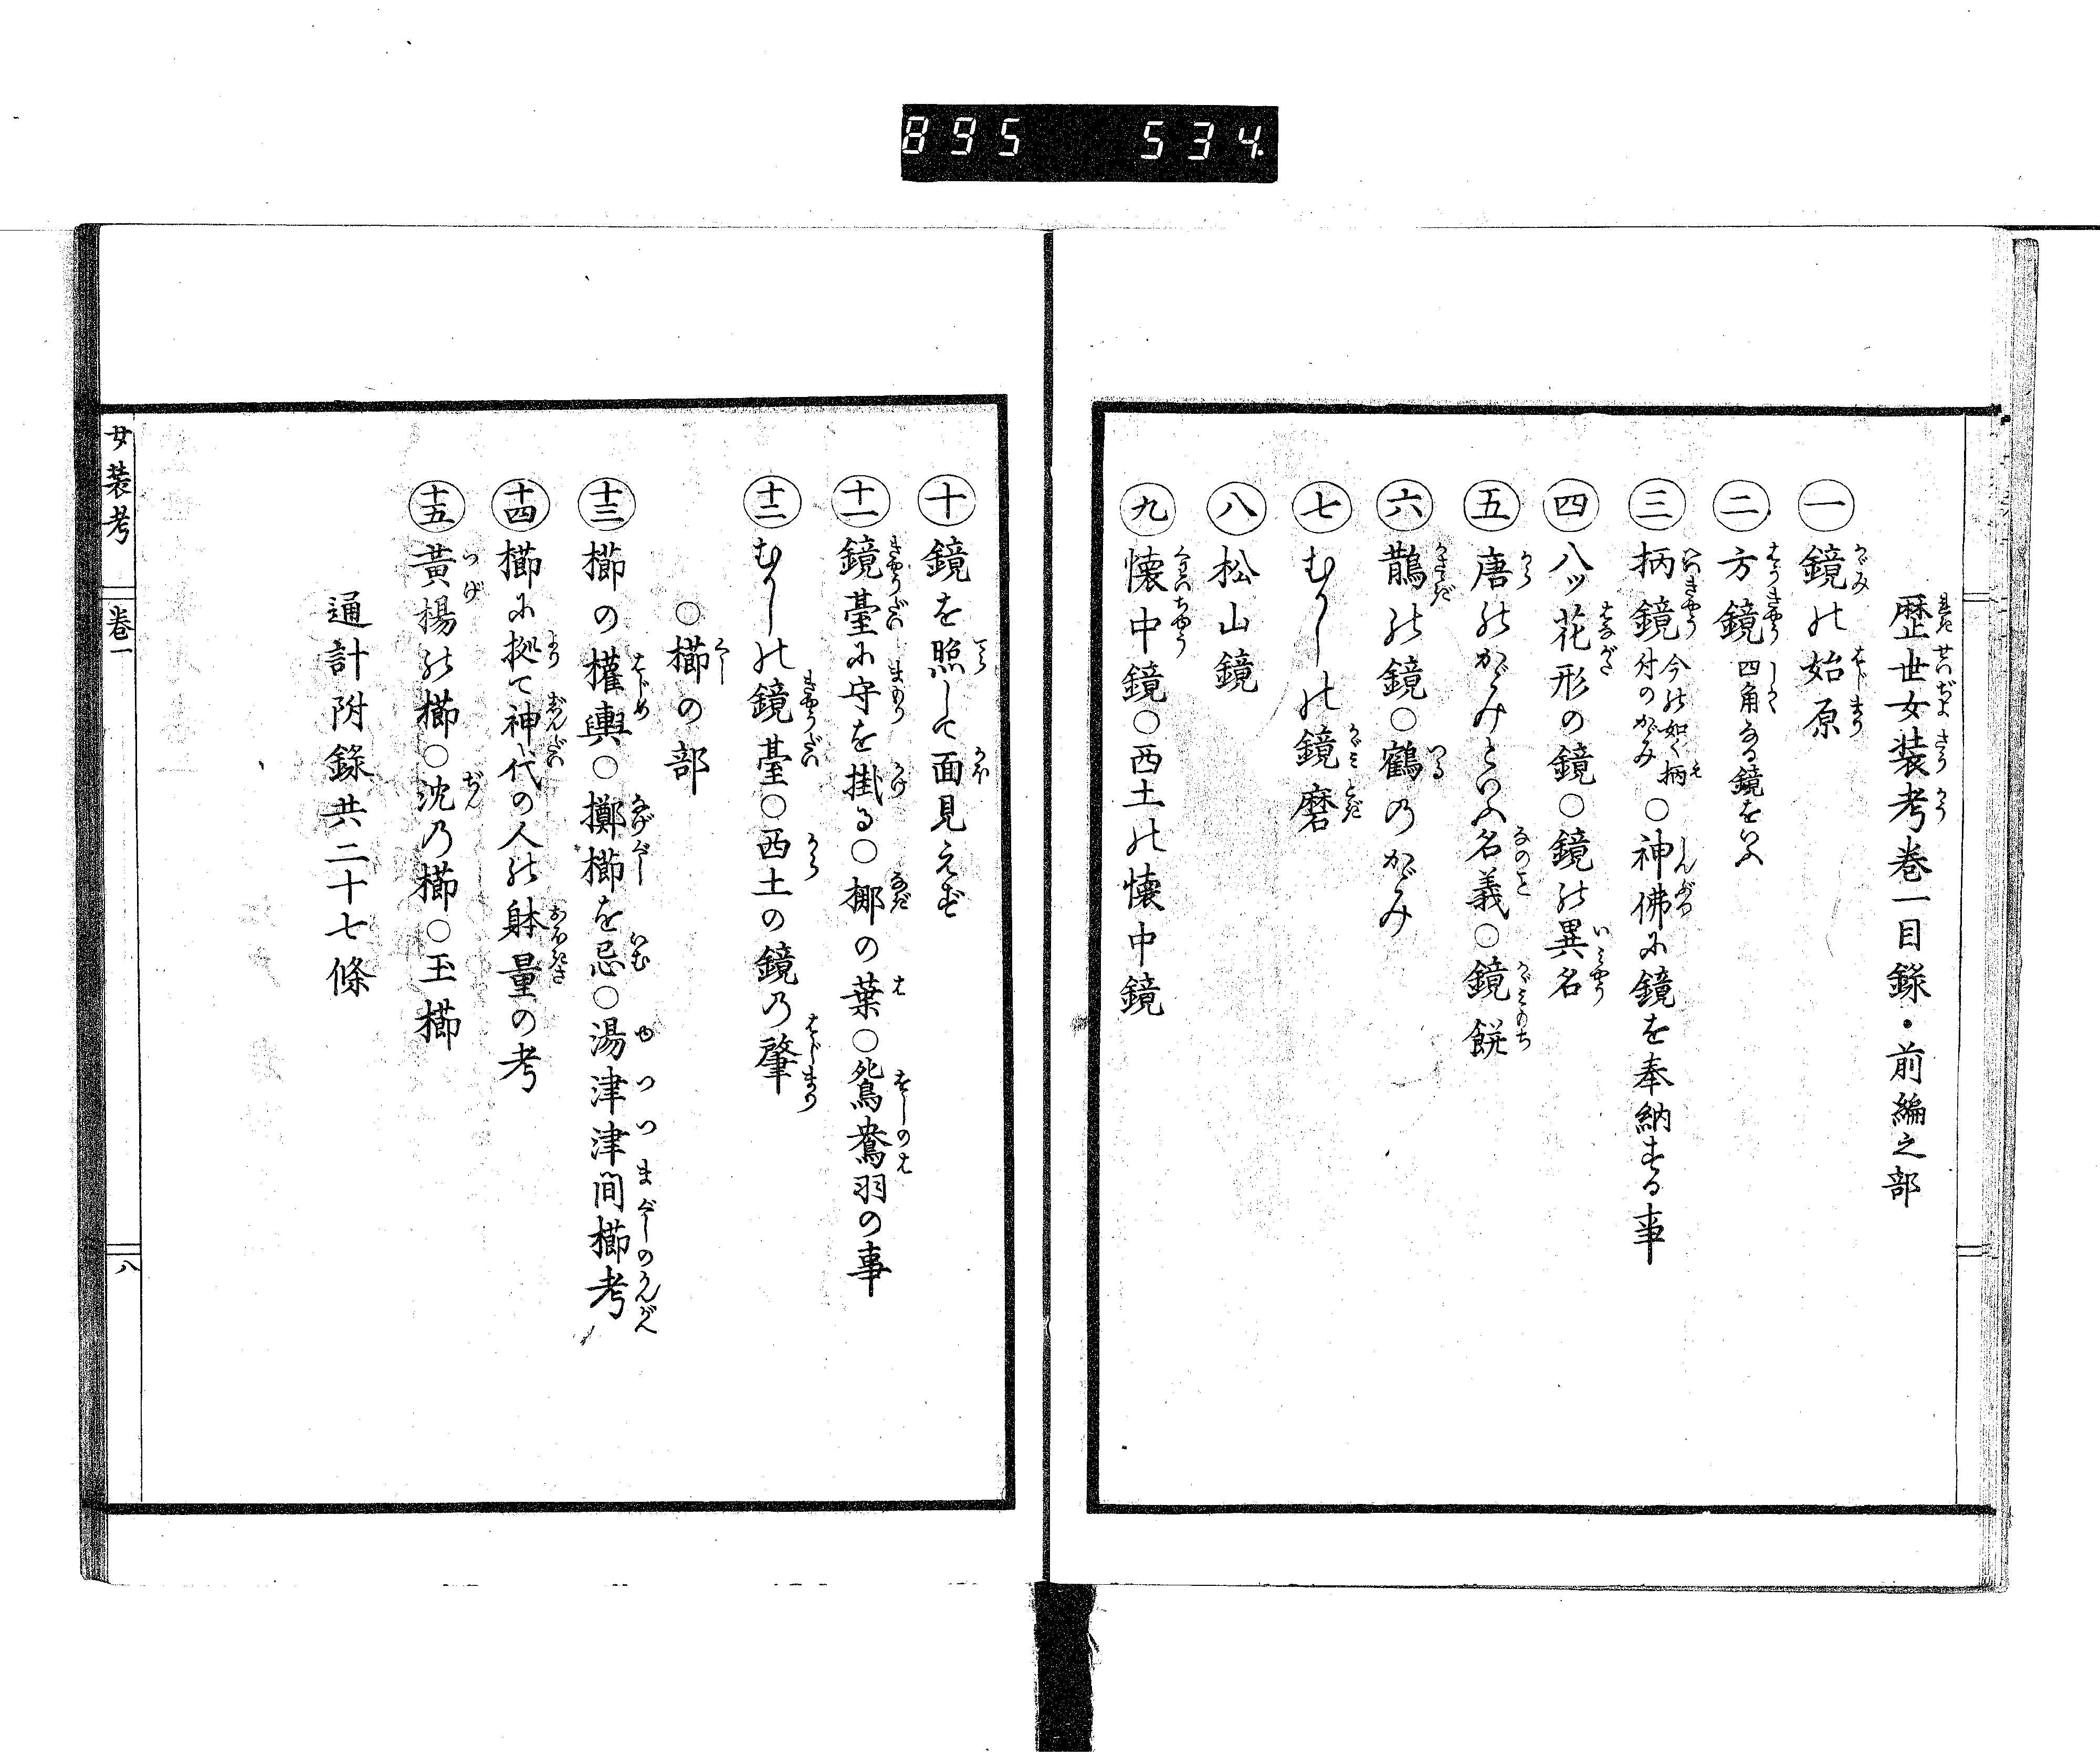 895 534
歴世女装考巻一目録・前編之部
一 鏡の始原
二 方鏡 四角なる鏡をいふ
三 柄鏡 今の如く柄付のかゞみ ○神佛に鏡を奉納する事
四 八ッ花形の鏡○鏡の異名
五 唐のかゞみといふ名義○鏡餅
六 鵲の鏡○鶴のかゞみ
七 むかしの鏡磨
八 松山鏡
九 懐中鏡○西土の懐中鏡
十 鏡を照して面見えず
十一 鏡臺に守を掛る○梛の葉○鴛鴦羽の事
十二 むかしの鏡臺○西土の鏡の肇
○櫛の部
十三 櫛の權輿○擲櫛を忌○湯津津間櫛考
十四 櫛に拠て神代の人の躰量の考
十五 黄楊の櫛○沈の櫛○玉櫛
通計附録共二十七條
女装考 巻一 八